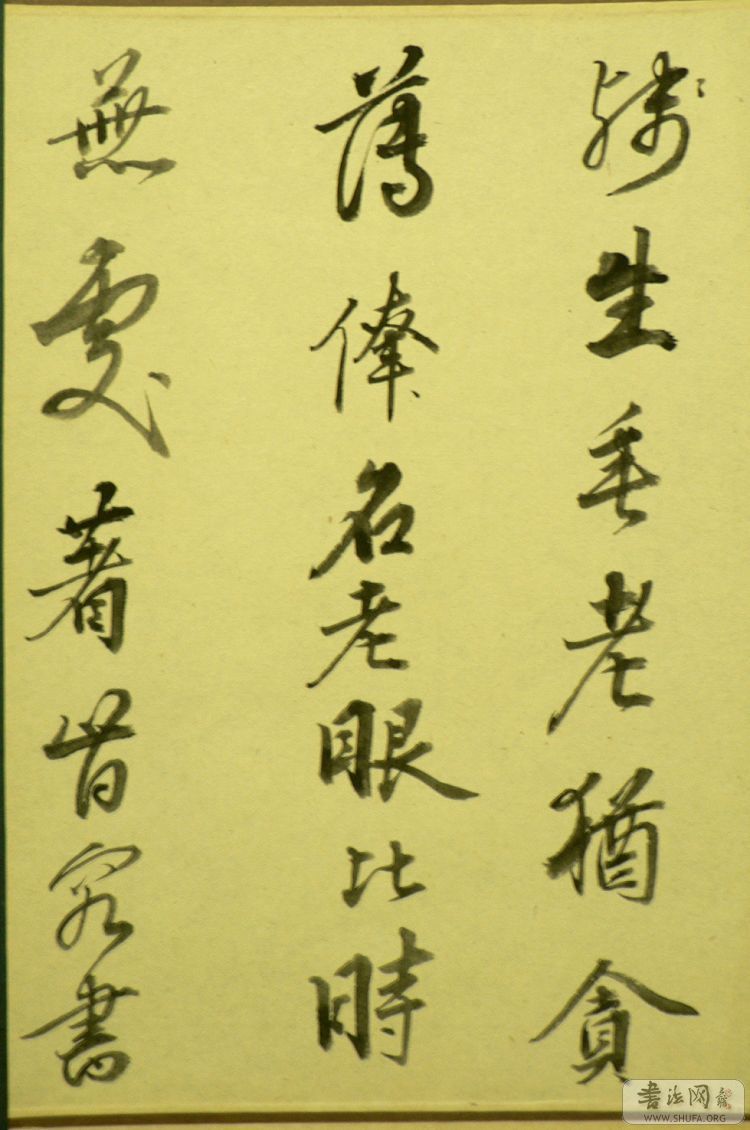 殘生垂老猶貪
薄俸名老眼比時
無處著昔書
書法网
WWW.SHUFA.ORG